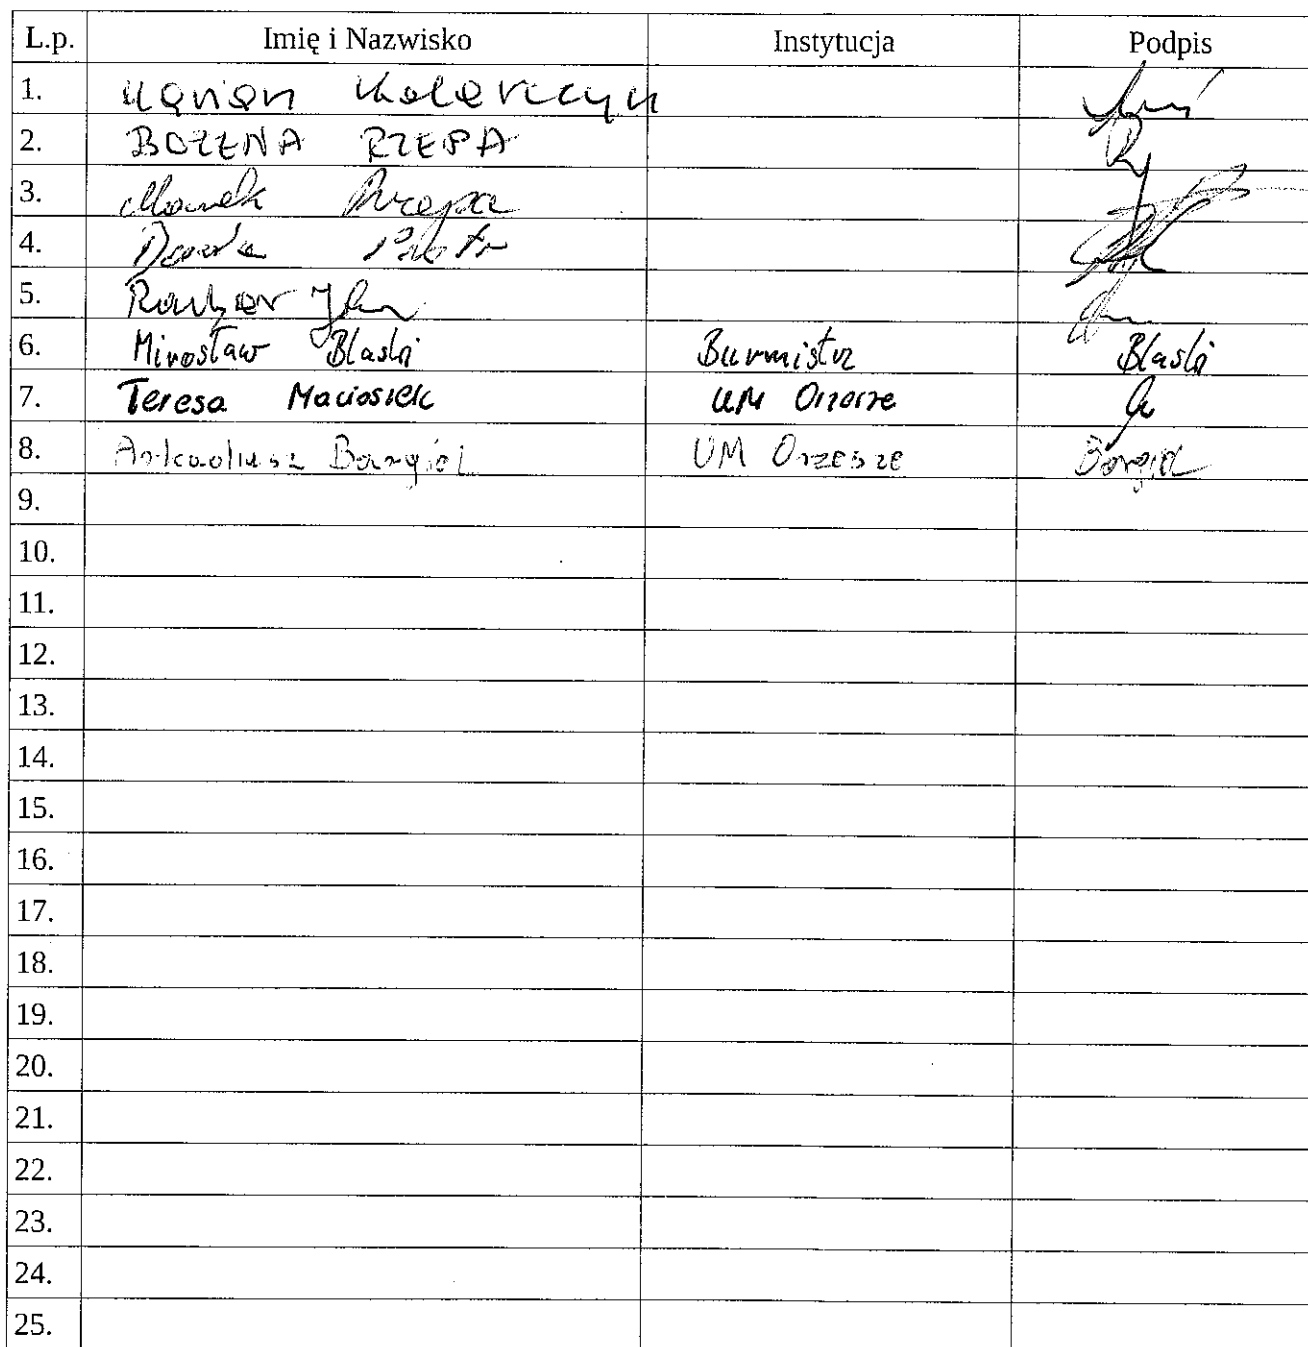 L.p. Imię i Nazwisko Instytucja Podpis
1. Marian
2. BOŻENA RZEPA
3. Marek Rzepa
4. Piotr
5.
6. Mirosław Blaski Burmistrz Blaski
7. Teresa Maciosiek UM Orzesze
8. Arkadiusz Bargieł UM Orzesze Bargieł
9.
10.
11.
12.
13.
14.
15.
16.
17.
18.
19.
20.
21.
22.
23.
24.
25.